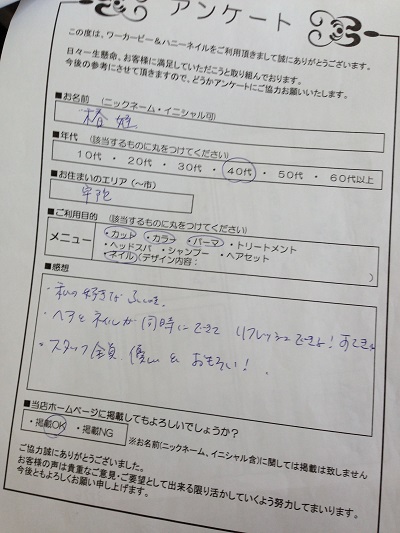 アンケート
この度は、ワーカービー&ハニーネイルをご利用頂きまして誠にありがとうございます。
日々一生懸命、お客様に満足していただこうと取り組んでおります。
今後の参考にさせて頂きますので、どうかアンケートにご協力お願いいたします。
■お名前 (ニックネーム・イニシャル可)
椿姫
■年代 (該当するものに丸をつけてください)
10代 ・ 20代 ・ 30代 ・ 40代 ・ 50代 ・ 60代以上
■お住まいのエリア(~市)
宇陀
■ご利用目的 (該当するものに丸をつけてください)
メニュー
・カット ・カラー ・パーマ ・トリートメント
・ヘッドスパ ・シャンプー ・ヘアセット
・ネイル(デザイン内容: )
■感想
・私の好きな
・ヘアとネイルが同時にできて リフレッシュできよ!
・スタッフ全員 優しい & おもろい!
■当店ホームページに掲載してもよろしいでしょうか?
・掲載OK ・掲載NG
※お名前(ニックネーム、イニシャル含)に関しては掲載は致しません
ご協力誠にありがとうございました。
お客様の声は貴重なご意見・ご要望として出来る限り活かしていくよう努力してまいります。
今後ともよろしくお願い申し上げます。